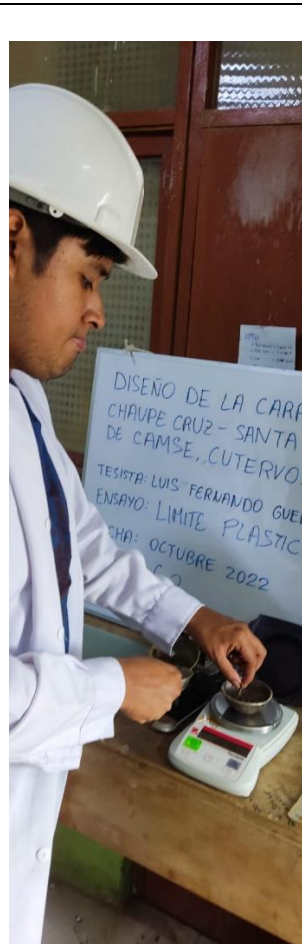 DISEÑO DE LA CARR
CHAUPE CRUZ - SANTA
DE CAMSE, CUTERVO
TESISTA: LUIS FERNANDO GUE
ENSAYO: LIMITE PLASTIC
CHA: OCTUBRE 2022